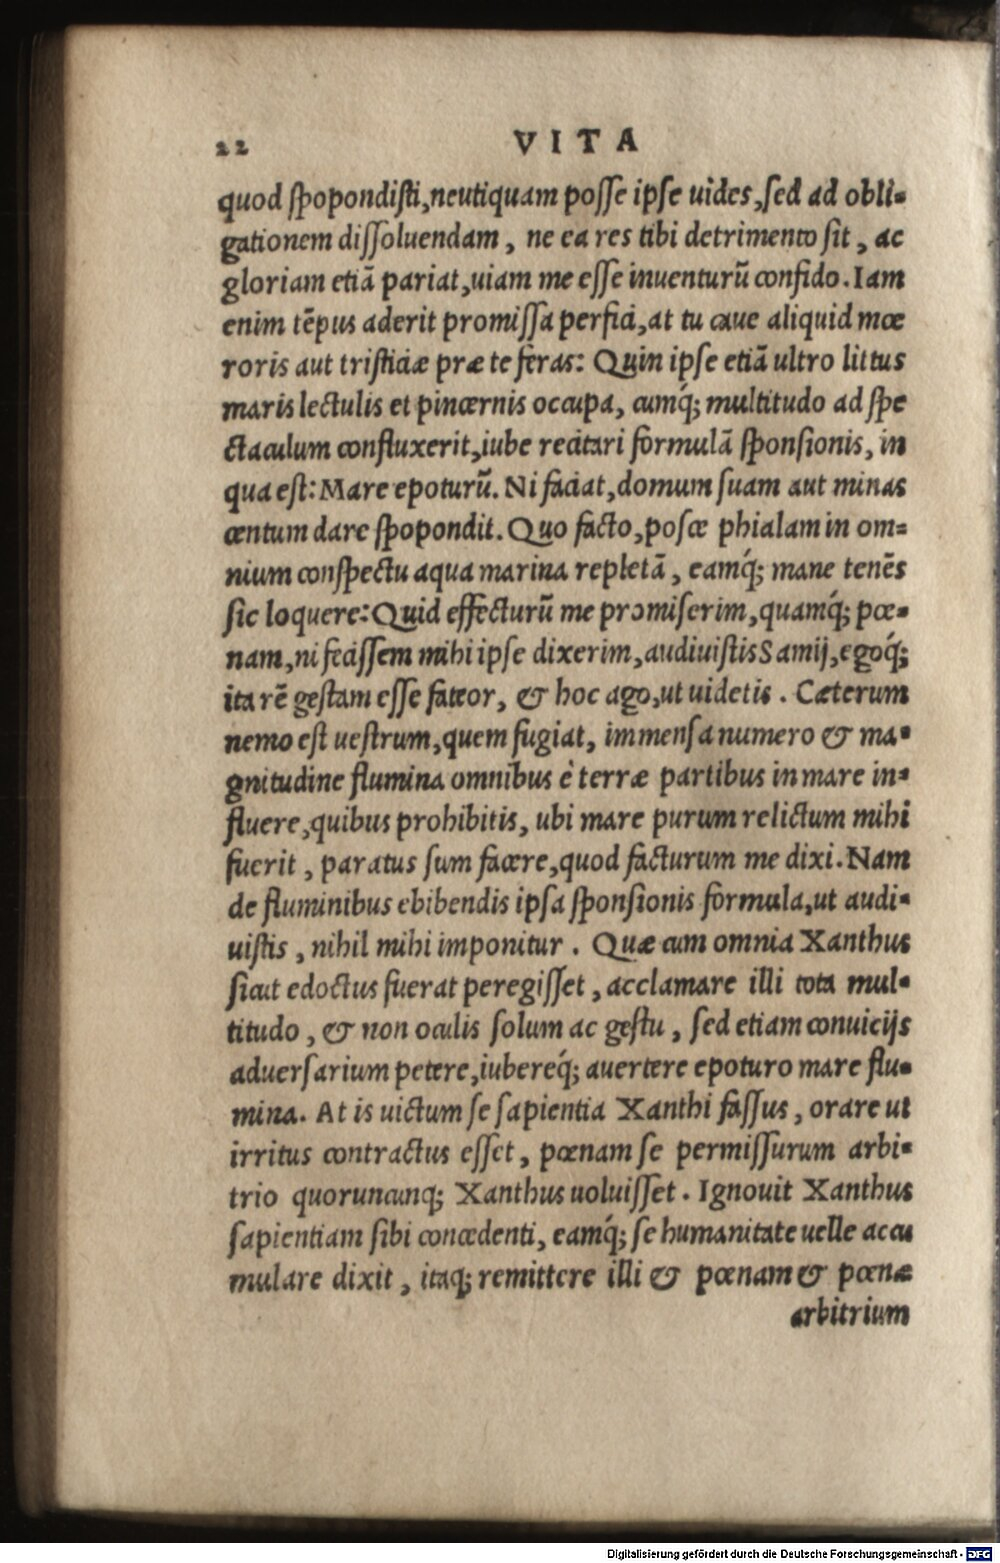 22 VITA
quod spopondisti, neutiquam posse ipse uides, sed ad obli=
gationem dissoluendam, ne ea res tibi detrimento sit, ac
gloriam etiã pariat, uiam me esse inuenturũ confido. Iam
enim tẽpus aderit promissa perfici, at tu caue aliquid mœ
roris aut tristiciæ præ te feras: Quin ipse etiã ultro littus
maris lectulis et pincernis occupa, cumq́; multitudo ad spe
ctaculum confluxerit, iube recitari formulã sponsionis, in
qua est: Mare epoturũ. Ni faciat, domum suam aut minas
centum dare spopondit. Quo facto, posce phialam in om=
nium conspectu aqua marina repletã, eamq́; mane tenẽs
sic loquere: Quid effecturũ me promiserim, quamq́; pœ=
nam, ni fecissem mihi ipse dixerim, audiuistis Samij, egoq́;
ita rẽ gestam esse fateor, & hoc ago, ut uidetis. Cæterum
nemo est uestrum, quem fugiat, immensa numero & ma=
gnitudine flumina omnibus è terræ partibus in mare in=
fluere, quibus prohibitis, ubi mare purum relictum mihi
fuerit, paratus sum facere, quod facturum me dixi. Nam
de fluminibus ebibendis ipsa sponsionis formula, ut audi=
uistis, nihil mihi imponitur. Quæ cum omnia Xanthus
sicut edoctus fuerat peregisset, acclamare illi tota mul=
titudo, & non oculis solum ac gestu, sed etiam conuicijs
aduersarium petere, iubereq́; auertere epoturo mare flu=
mina. At is uictum se sapientia Xanthi fassus, orare ut
irritus contractus esset, pœnam se permissurum arbi=
trio quoruncunq; Xanthus uoluisset. Ignouit Xanthus
sapientiam sibi concedenti, eamq́; se humanitate uelle accu
mulare dixit, itaq; remittere illi & pœnam & pœnæ
arbitrium
Digitalisierung gefördert durch die Deutsche Forschungsgemeinschaft - DFG